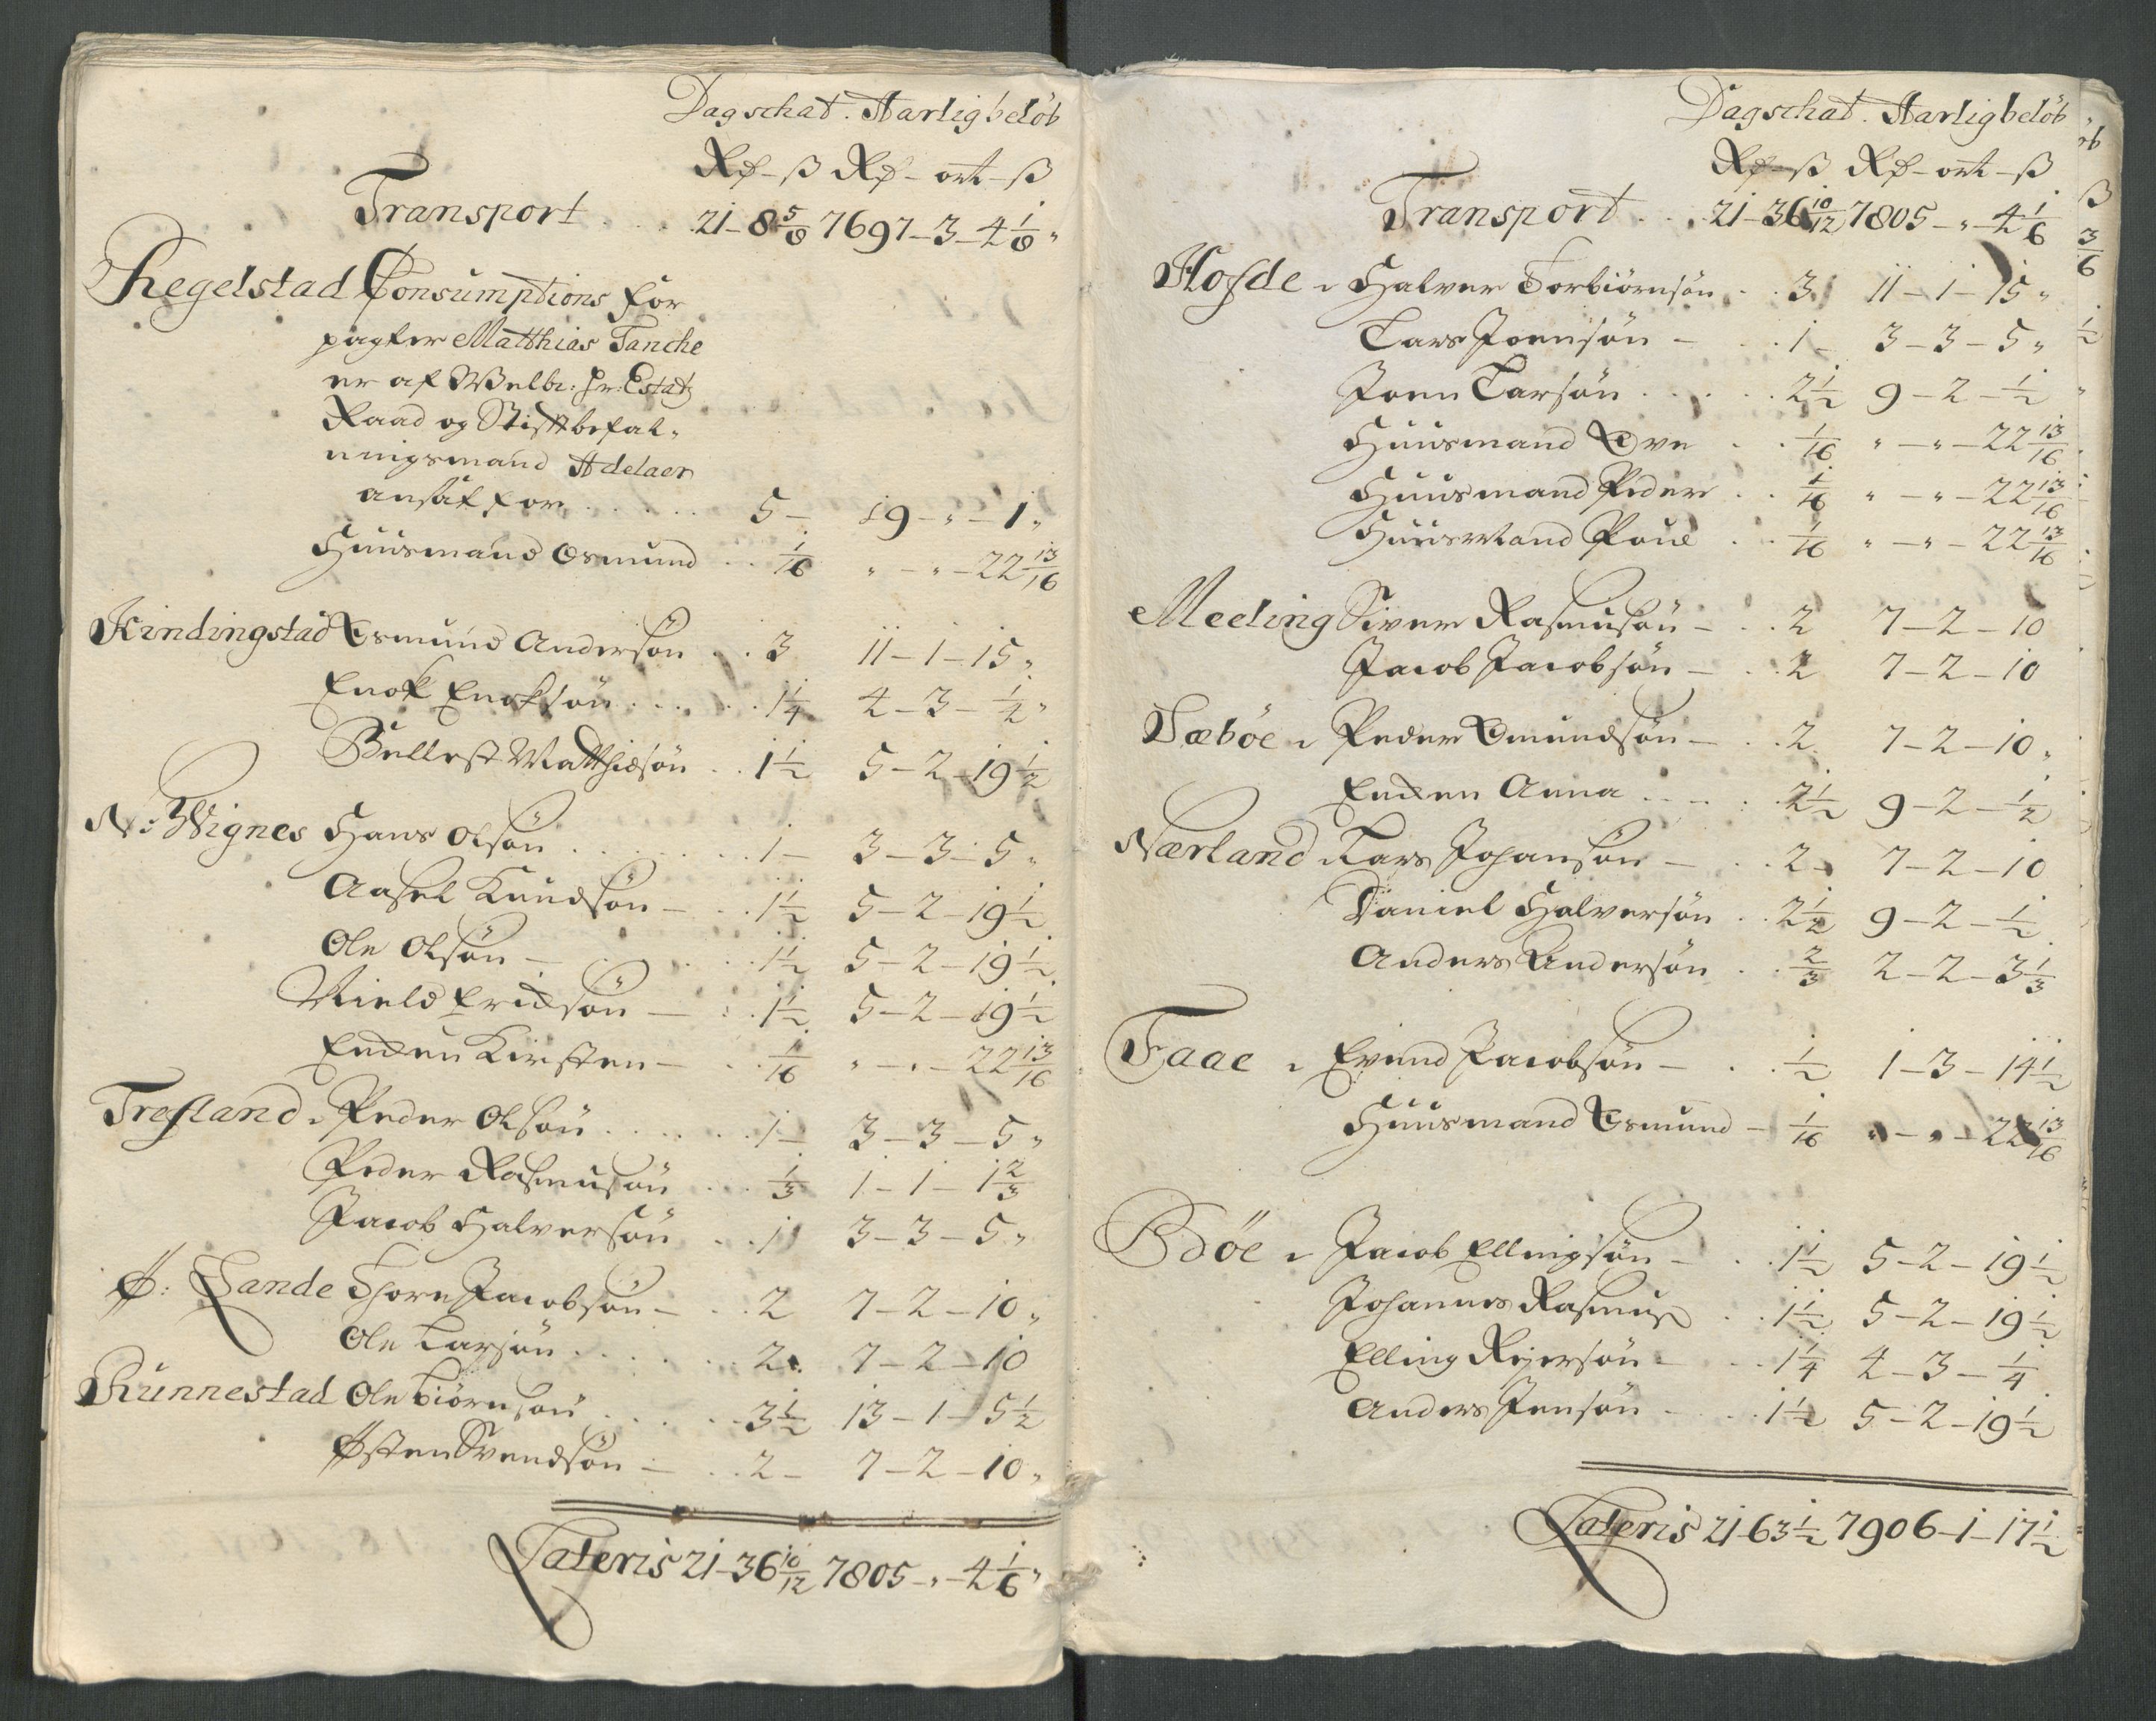 Dagschat. Aarlig beløb
Rd - ß Rd - ort - ß
Transport . . . 21 - 8 5/8 7697 - 3 - 4 1/8 "
Regelstad Consumptions for
pagter Matthias Tanche
er af Welbr: Hr: Estatz
Raad og Stiftbefal-
ningsmand Adelaer
ansat for . . . . . . 5 - 19 - " - 1 "
Huusmand Osmund . . 1/16 " - " - 22 13/16
Kindingstad Osmund Andersøn . . 3 11 - 1 - 15 "
Enok Enoksøn . . . . . 1 1/4 4 - 3 - 1/4 "
Bellest Matthiesøn . . 1 1/2 5 - 2 - 19 1/2
N: Wignes Hans Olsøn . . . . . . 1 - 3 - 3 - 5 "
Aasel Knudsøn - . . 1 1/2 5 - 2 - 19 1/2
Ole Olsøn - . . . . 1 1/2 5 - 2 - 19 1/2
Nield Ericsøn - . . 1 1/2 5 - 2 - 19 1/2
Encken Kirsten - . . 1/16 " - " - 22 13/16
Trefland " Peder Olsøn . . . . . . 1 - 3 - 3 - 5 "
Peder Rasmusøn . . . 1/3 1 - 1 - 1 2/3
Jacob Halversøn . . 1 3 - 3 - 5 "
Ø: Sande Thore Jacobsøn - . . 2 7 - 2 - 10 "
Ole Larsøn . . . . . . 2 . 7 - 2 - 10
Runnestad Ole Biørnsøn . . . . . 3 1/2 13 - 1 - 5 1/2
Østen Svendsøn - . . 2 - 7 - 2 - 10 "
Lateris 21 - 36 10/12 7805 - " - 4 1/6 "
Dagschat. Aarlig beløb
Rd - ß Rd - ort - ß
Transport . . . 21 - 36 10/12 7805 - " - 4 1/6
Hofde " Halver Torbiørnsøn . . 3 11 - 1 - 15 "
Lars Joensøn - . . 1 - 3 - 3 - 5 "
Joen Larsøn . . . . . 2 1/2 9 - 2 - 1/2
Huusmand Ove . . 1/16 " - " - 22 13/16
Huusmand Peder . . 1/16 " - " - 22 13/16
Huusmand Poul . . 1/16 " - " - 22 13/16
Meeling Siver Rasmusøn - . . 2 7 - 2 - 10
Jacob Jacobsøn - . . 2 7 - 2 - 10
Sæbøe " Peder Omundsøn - . . 2 7 - 2 - 10 "
Encken Anna . . . . . 2 1/2 9 - 2 - 1/2
Nærland " Lars Johansøn - . . 2 - 7 - 2 - 10
Daniel Halversøn . . 2 1/2 9 - 2 - 1/2
Anders Andersøn . . 2/3 2 - 2 - 3 1/3
Faae " Evind Jacobsøn - . . 1/2 1 - 3 - 14 1/2
Huusmand Osmund - 1/16 " - " - 22 13/16
Bøe " Jacob Ellingsøn - . . 1 1/2 5 - 2 - 19 1/2
Johannes Rasmus . . 1 1/2 5 - 2 - 19 1/2
Elling Reiersøn - . . 1 1/4 4 - 3 - 1/4
Anders Jensøn - . . 1 1/2 5 - 2 - 19 1/2
Lateris 21 - 63 1/2 7906 - 1 - 17 1/2